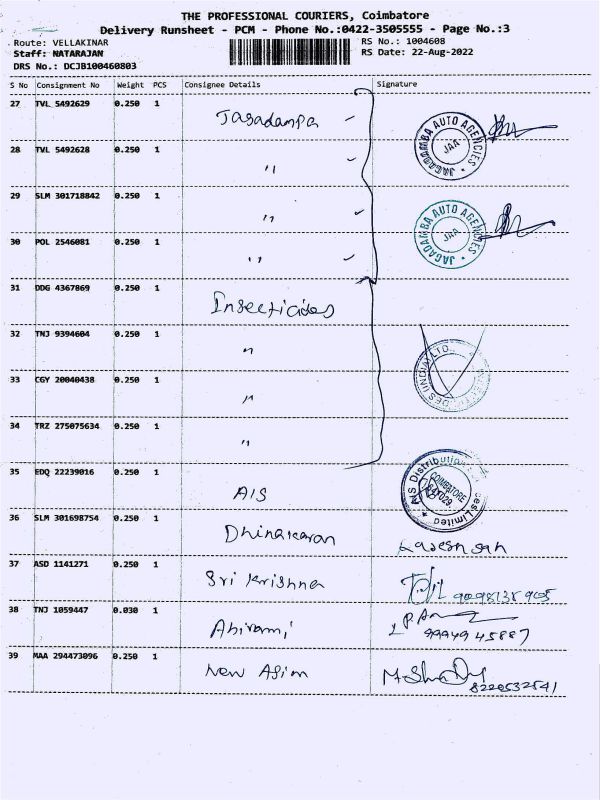 THE PROFESSIONAL COURIERS, Coimbatore
Delivery Runsheet - PCM - Phone No.:0422-3505555 - Page No.:3
Route: VELLAKINAR RS No.: 1004608
Staff: NATARAJAN RS Date: 22-Aug-2022
DRS No.: DCJB100460803
S No Consignment No Weight PCS Consignee Details Signature
27 TVL 5492629 0.250 1 Jagadampa
28 TVL 5492628 0.250 1 "
29 SLM 301718842 0.250 1 "
30 POL 2546081 0.250 1 "
JAGADAMBA AUTO AGENCIES
JAA
JAGADAMBA AUTO AGENCIES
JAA
31 DDG 4367869 0.250 1 Insecticides
32 TNJ 9394604 0.250 1 "
33 CGY 20040438 0.250 1 "
34 TRZ 275075634 0.250 1 "
35 EDQ 22239016 0.250 1 AIS
COIMBATORE
36 SLM 301698754 0.250 1 Dhinakaran
37 ASD 1141271 0.250 1 Sri Krishna
38 TNJ 1059447 0.030 1 Abirami 9994945887
39 MAA 294473096 0.250 1 New Asian 8220532541